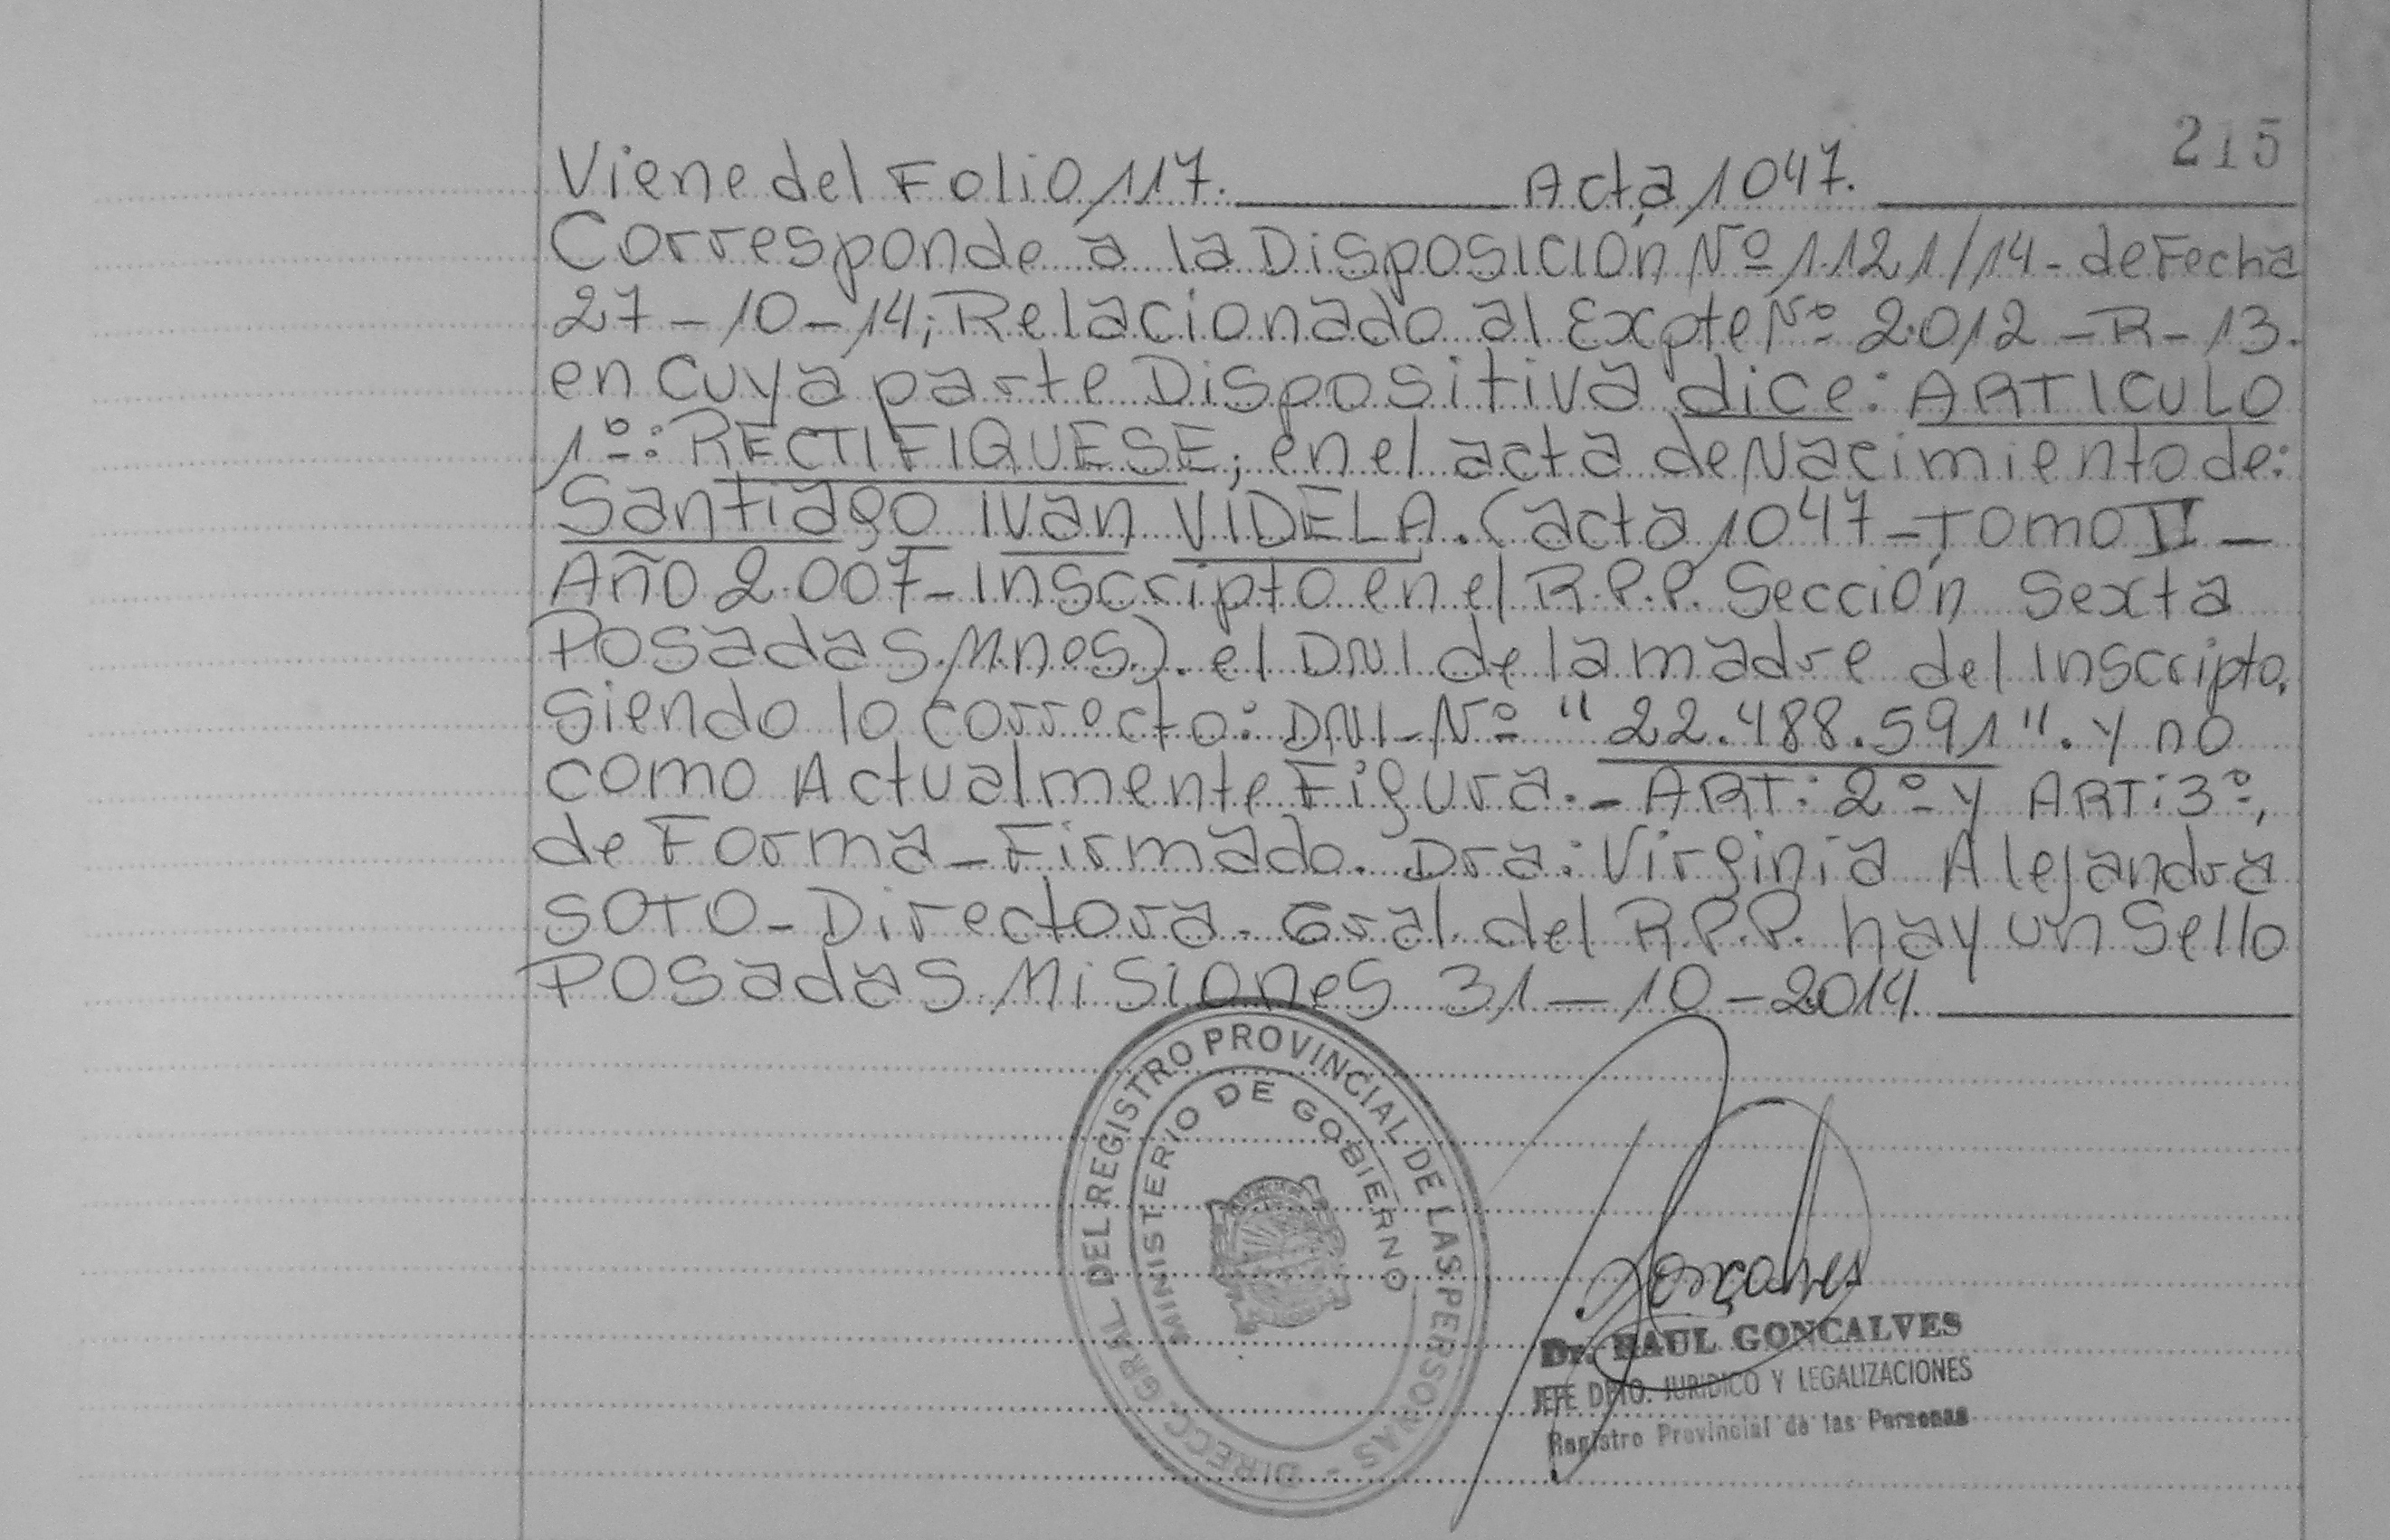 215
Viene del Folio 117. Acta 1047.
Corresponde a la Disposición Nº 1121/14 - de Fecha
27-10-14; Relacionado al Expte Nº 2.012-R-13.
en cuya parte Dispositiva dice: ARTICULO
1º: RECTIFIQUESE; en el acta de Nacimiento de:
Santiago Ivan VIDELA. (acta 1047-Tomo II-
Año 2.007-Inscripto en el R.P.P. Sección Sexta
Posadas. Mnes.). el DNI de la madre del inscripto.
siendo lo correcto: DNI-Nº "22.488.591". y no
como Actualmente Figura.- ART: 2º y ART: 3º,
de Forma-Firmado. Dra: Virginia Alejandra
SOTO-Directora. Gral. del R.P.P. hay un Sello
Posadas. Misiones 31-10-2014.
DIRECC. GRAL. DEL REGISTRO PROVINCIAL DE LAS PERSONAS -
MINISTERIO DE GOBIERNO
Gonçalves
Dr. RAUL GONCALVES
JEFE DPTO. JURIDICO Y LEGALIZACIONES
Registro Provincial de las Personas